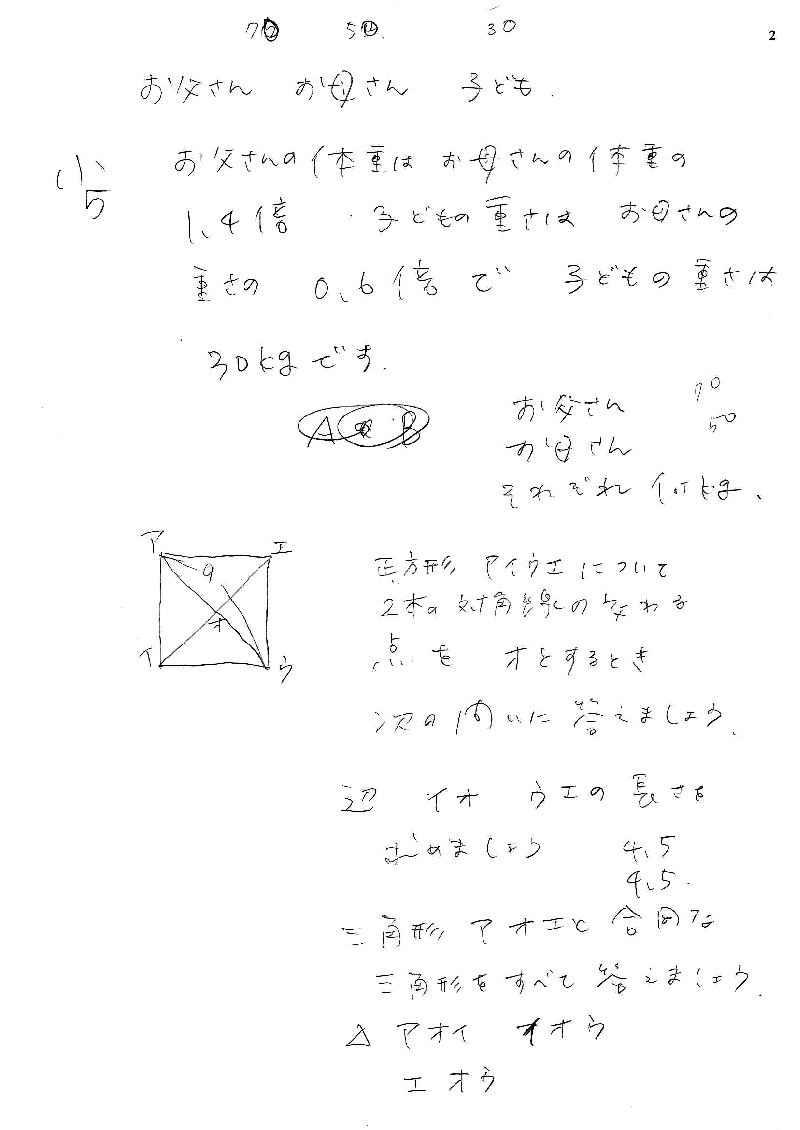 70 50 30
2
お父さん お母さん 子ども.
小5
お父さんの体重はお母さんの体重の
1.4倍 子どもの重さは お母さんの
重さの 0.6倍で 子どもの重さは
30kgです.
A B
お父さん 70
お母さん 50
それぞれ 何kg.
ア エ
9
オ
イ ウ
正方形 アイウエについて
2本の対角線の交わる
点を オとするとき
次の問いに答えましょう.
辺 イオ ウエの長さを
求めましょう 4.5
4.5.
三角形 アオエと合同な
三角形をすべて答えましょう.
△ アオイ イオウ
エオウ